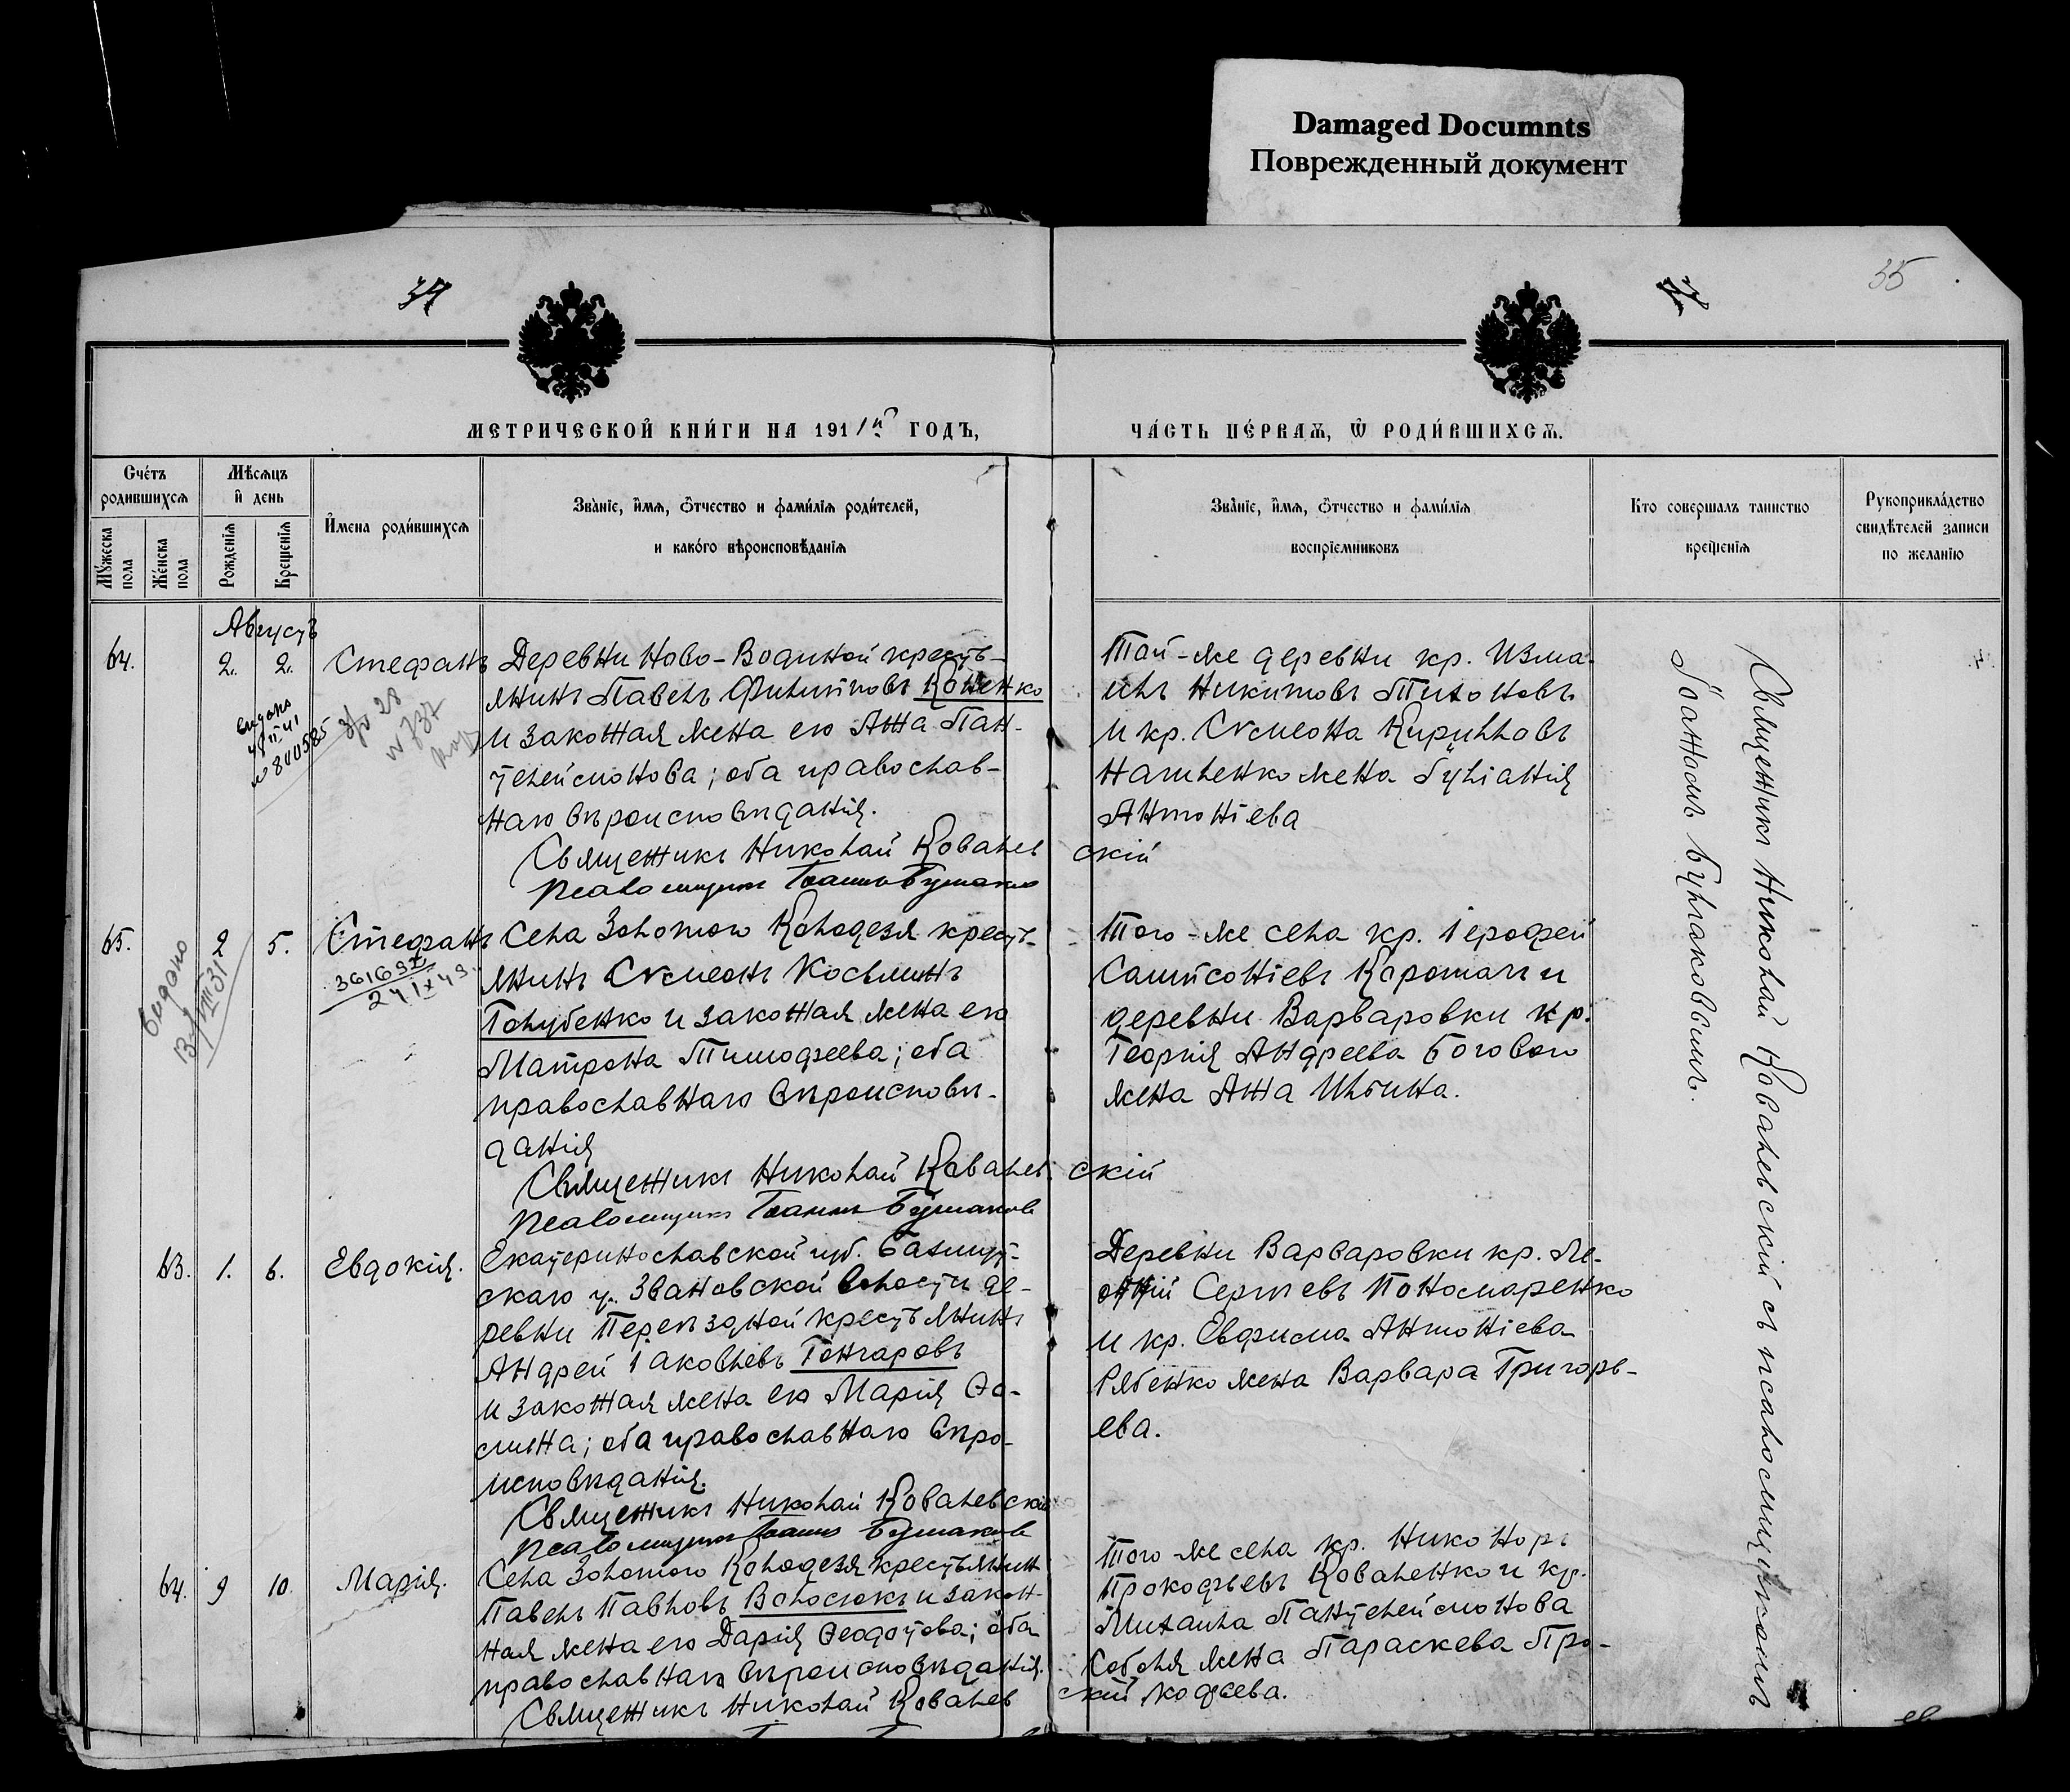 Damaged Documnts
Поврежденный документ
35
МЕТРИЧЕСКОЙ КНИГИ НА 1911й ГОДЪ,
ЧАСТЬ ПЕРВАЯ, Ѡ РОДИВШИХСЯ.
Счетъ
родившихся
Мужеска
пола
Женска
пола
Мѣсяцъ
и день
Рожденія
Крещенія
Имена родившихся
Званіе, имя, отчество и фамилія родителей,
и какого вѣроисповѣданія
Званіе, имя, отчество и фамилія
воспріемниковъ
Кто совершалъ таинство
крещенія
Рукоприкладство
свидѣтелей записи
по желанію
Августъ
64.
2.
2.
Стефанъ
Деревни Ново-Водяной кресть-
янинъ Павелъ Филипповъ Коненко
и законная жена его Анна Пан-
телеймонова; оба православ-
наго вѣроисповѣданія.
Священникъ Николай Ковалевскій
Псаломщикъ Іоаннъ Булгаковъ
Той-же деревни кр. Изма-
илъ Никитовъ Тихоновъ
и кр. Симеона Кириллова
жена Іуліанія
Антоніева
выдано
№ 840585
65.
2
5.
Стефанъ
361692
выдано
Села Золотого Колодезя кресть-
янинъ Симеонъ Косьминъ
Голубенко и законная жена его
Матрона Тимофеева; оба
православнаго вѣроисповѣ-
данія
Священникъ Николай Ковалевскій
Псаломщикъ Іоаннъ Булгаковъ
Того-же села кр. Іерофей
Сампсоніевъ и
деревни Варваровки кр.
Георгія Андреева Богового
жена Анна Ильина.
63.
1.
6.
Евдокія.
Екатеринославской губ. Бахмут-
скаго у. Звановской волости де-
ревни Переѣздной крестьянинъ
Андрей Іаковлевъ Гончаровъ
и законная жена его Марія Ѳо-
мина; оба православнаго вѣро-
исповѣданія.
Священникъ Николай Ковалевскій
Псаломщикъ Іоаннъ Булгаковъ
Деревни Варваровки кр. Ле-
онтій Сергѣевъ Пономаренко
и кр. Евфима Антоніева
Рябенко жена Варвара Григорь-
ева.
64.
9
10.
Марія.
Села Золотого Колодезя крестьянинъ
Павелъ Павловъ Волосюкъ и закон-
ная жена его Дарія Ѳеодотова; оба
православнаго вѣроисповѣданія.
Священникъ Николай Ковалевскій
Того же села кр. Никоноръ
Прокофьевъ Коваленко и кр.
Михаила Пантелеймонова
жена Параскева Про-
кофьева.
Священникъ Николай Ковалевскій съ псаломщикомъ
Іоанномъ Булгаковымъ.